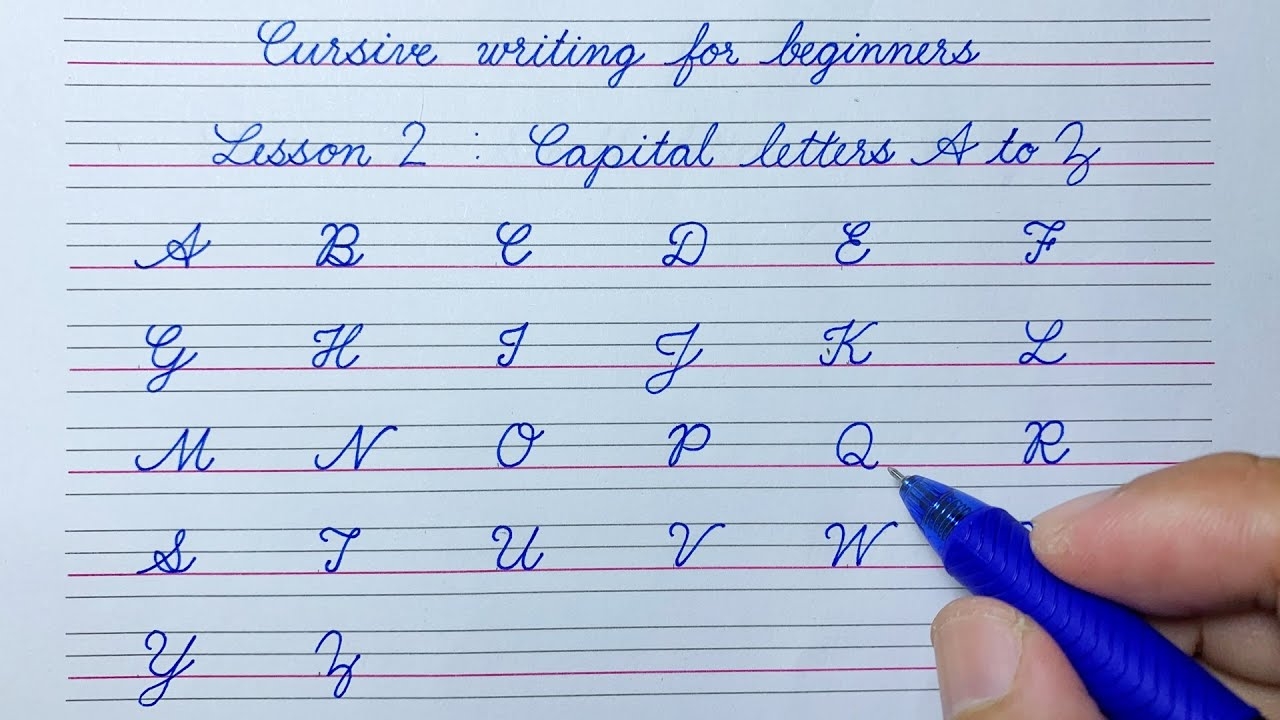 Cursive writing for beginners
Lesson 2 : Capital letters A to Z
A B C D E F
G H I J K L
M N O P Q R
S T U V W
Y Z